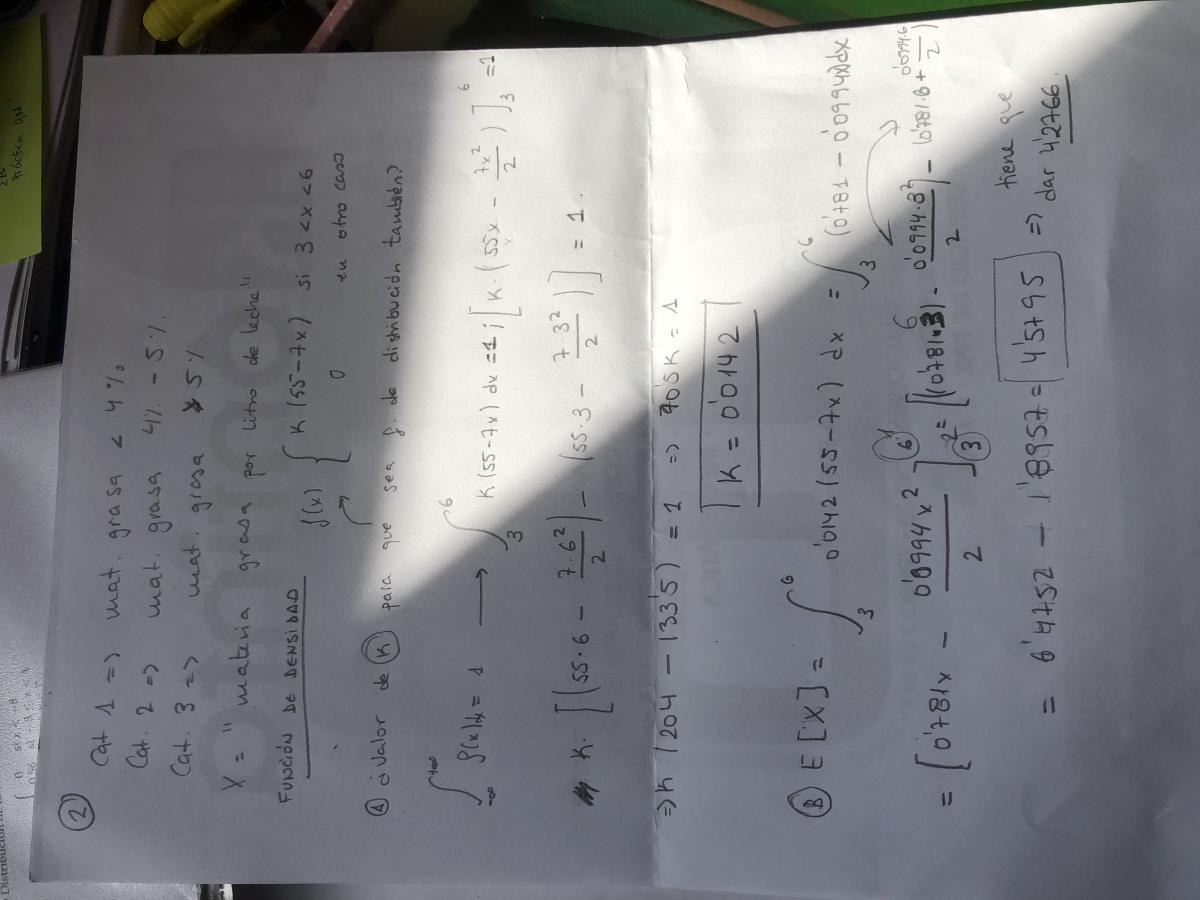 ②
Cat 1 => mat. grasa < 4%
Cat. 2 => mat. grasa 4% - 5%
Cat. 3 => mat. grasa > 5%
X = "materia grasa por litro de leche"
FUNCIÓN DE DENSIDAD f(x) { K(55-7x) si 3<x<6
0 en otro caso
Ⓐ ¿Valor de Ⓚ para que sea f. de distribución también?
∫_{-∞}^{+∞} f(x)dx = 1 ⟶ ∫_3^6 K(55-7x) dx = 1 ; [K·(55x - 7x²/2)]_3^6 = 1
K·[(55·6 - 7·6²/2) - (55·3 - 7·3²/2)] = 1.
=> K(204 - 133'5) = 1 => 70'5K = 1
K = 0'0142
Ⓑ E[X] = ∫_3^6 0'0142(55-7x) dx = ∫_3^6 (0'781 - 0'0994x)dx
= [0'781x - 0'0994x²/2]_3^6 = [(0'781·3) - 0'0994·3²/2] - (0'781·6 + 0'0994·6/2)
= 6'4752 - 1'8957 = 4'5795 => tiene que
dar 4'2766.